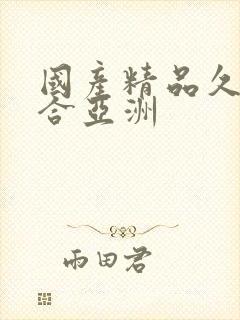 國產精品久
合亞洲
雨田君